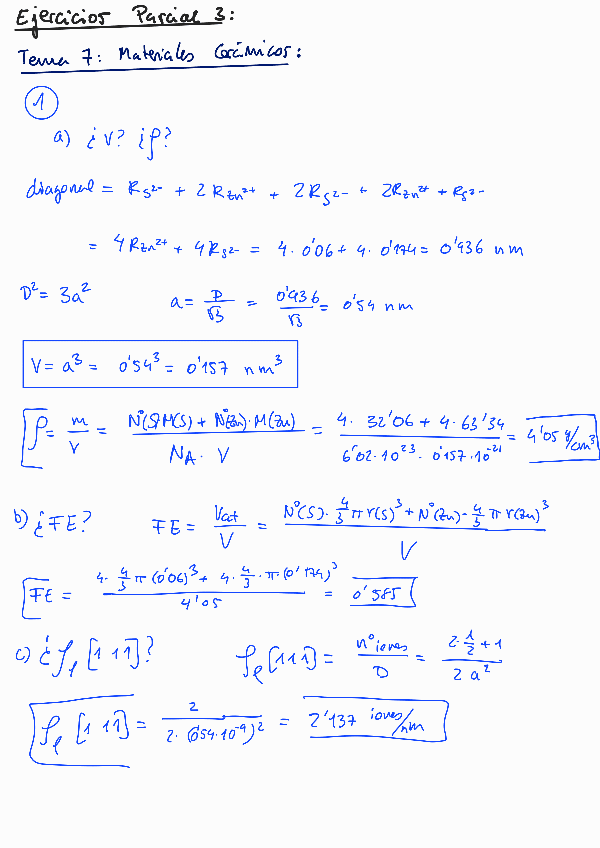 Ejercicios Parcial 3:
Tema 7: Materiales Cerámicos:
1
a) ¿V? ¿ρ?
diagonal = R_S²⁻ + 2R_Zn²⁺ + 2R_S²⁻ + 2R_Zn²⁺ + R_S²⁻
= 4R_Zn²⁺ + 4R_S²⁻ = 4·0'06 + 4·0'174 = 0'936 nm
D² = 3a² a = D/√3 = 0'936/√3 = 0'54 nm
V = a³ = 0'54³ = 0'157 nm³
ρ = m/V = (Nº(S)·M(S) + Nº(Zn)·M(Zn))/(N_A · V) = (4·32'06 + 4·63'34)/(6'02·10²³ · 0'157·10⁻²¹) = 4'05 g/cm³
b) ¿FE? FE = Vcat/V = (Nº(S)·4/3 π r(S)³ + Nº(Zn)·4/3 π r(Zn)³)/V
FE = (4·4/3 π (0'06)³ + 4·4/3·π·(0'174)³)/4'05 = 0'585
c) ¿ρ_l [1 1 1]? ρ_l [1 1 1] = nº iones/D = (2·1/2 + 1)/(2a²)
ρ_l [1 1 1] = 2/(2·(0'54·10⁻⁹)²) = 2'137 iones/nm